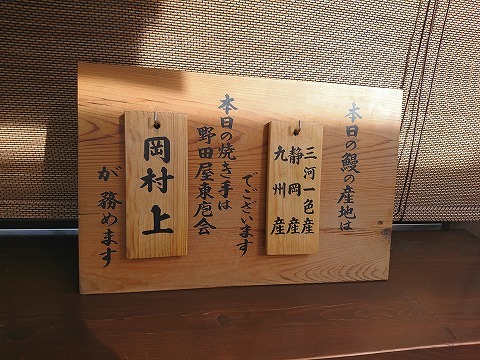 本日の鰻の産地は
三河一色産
静岡産
九州産
でございます
本日の焼き手は
野田屋東庖会
岡村上
が務めます